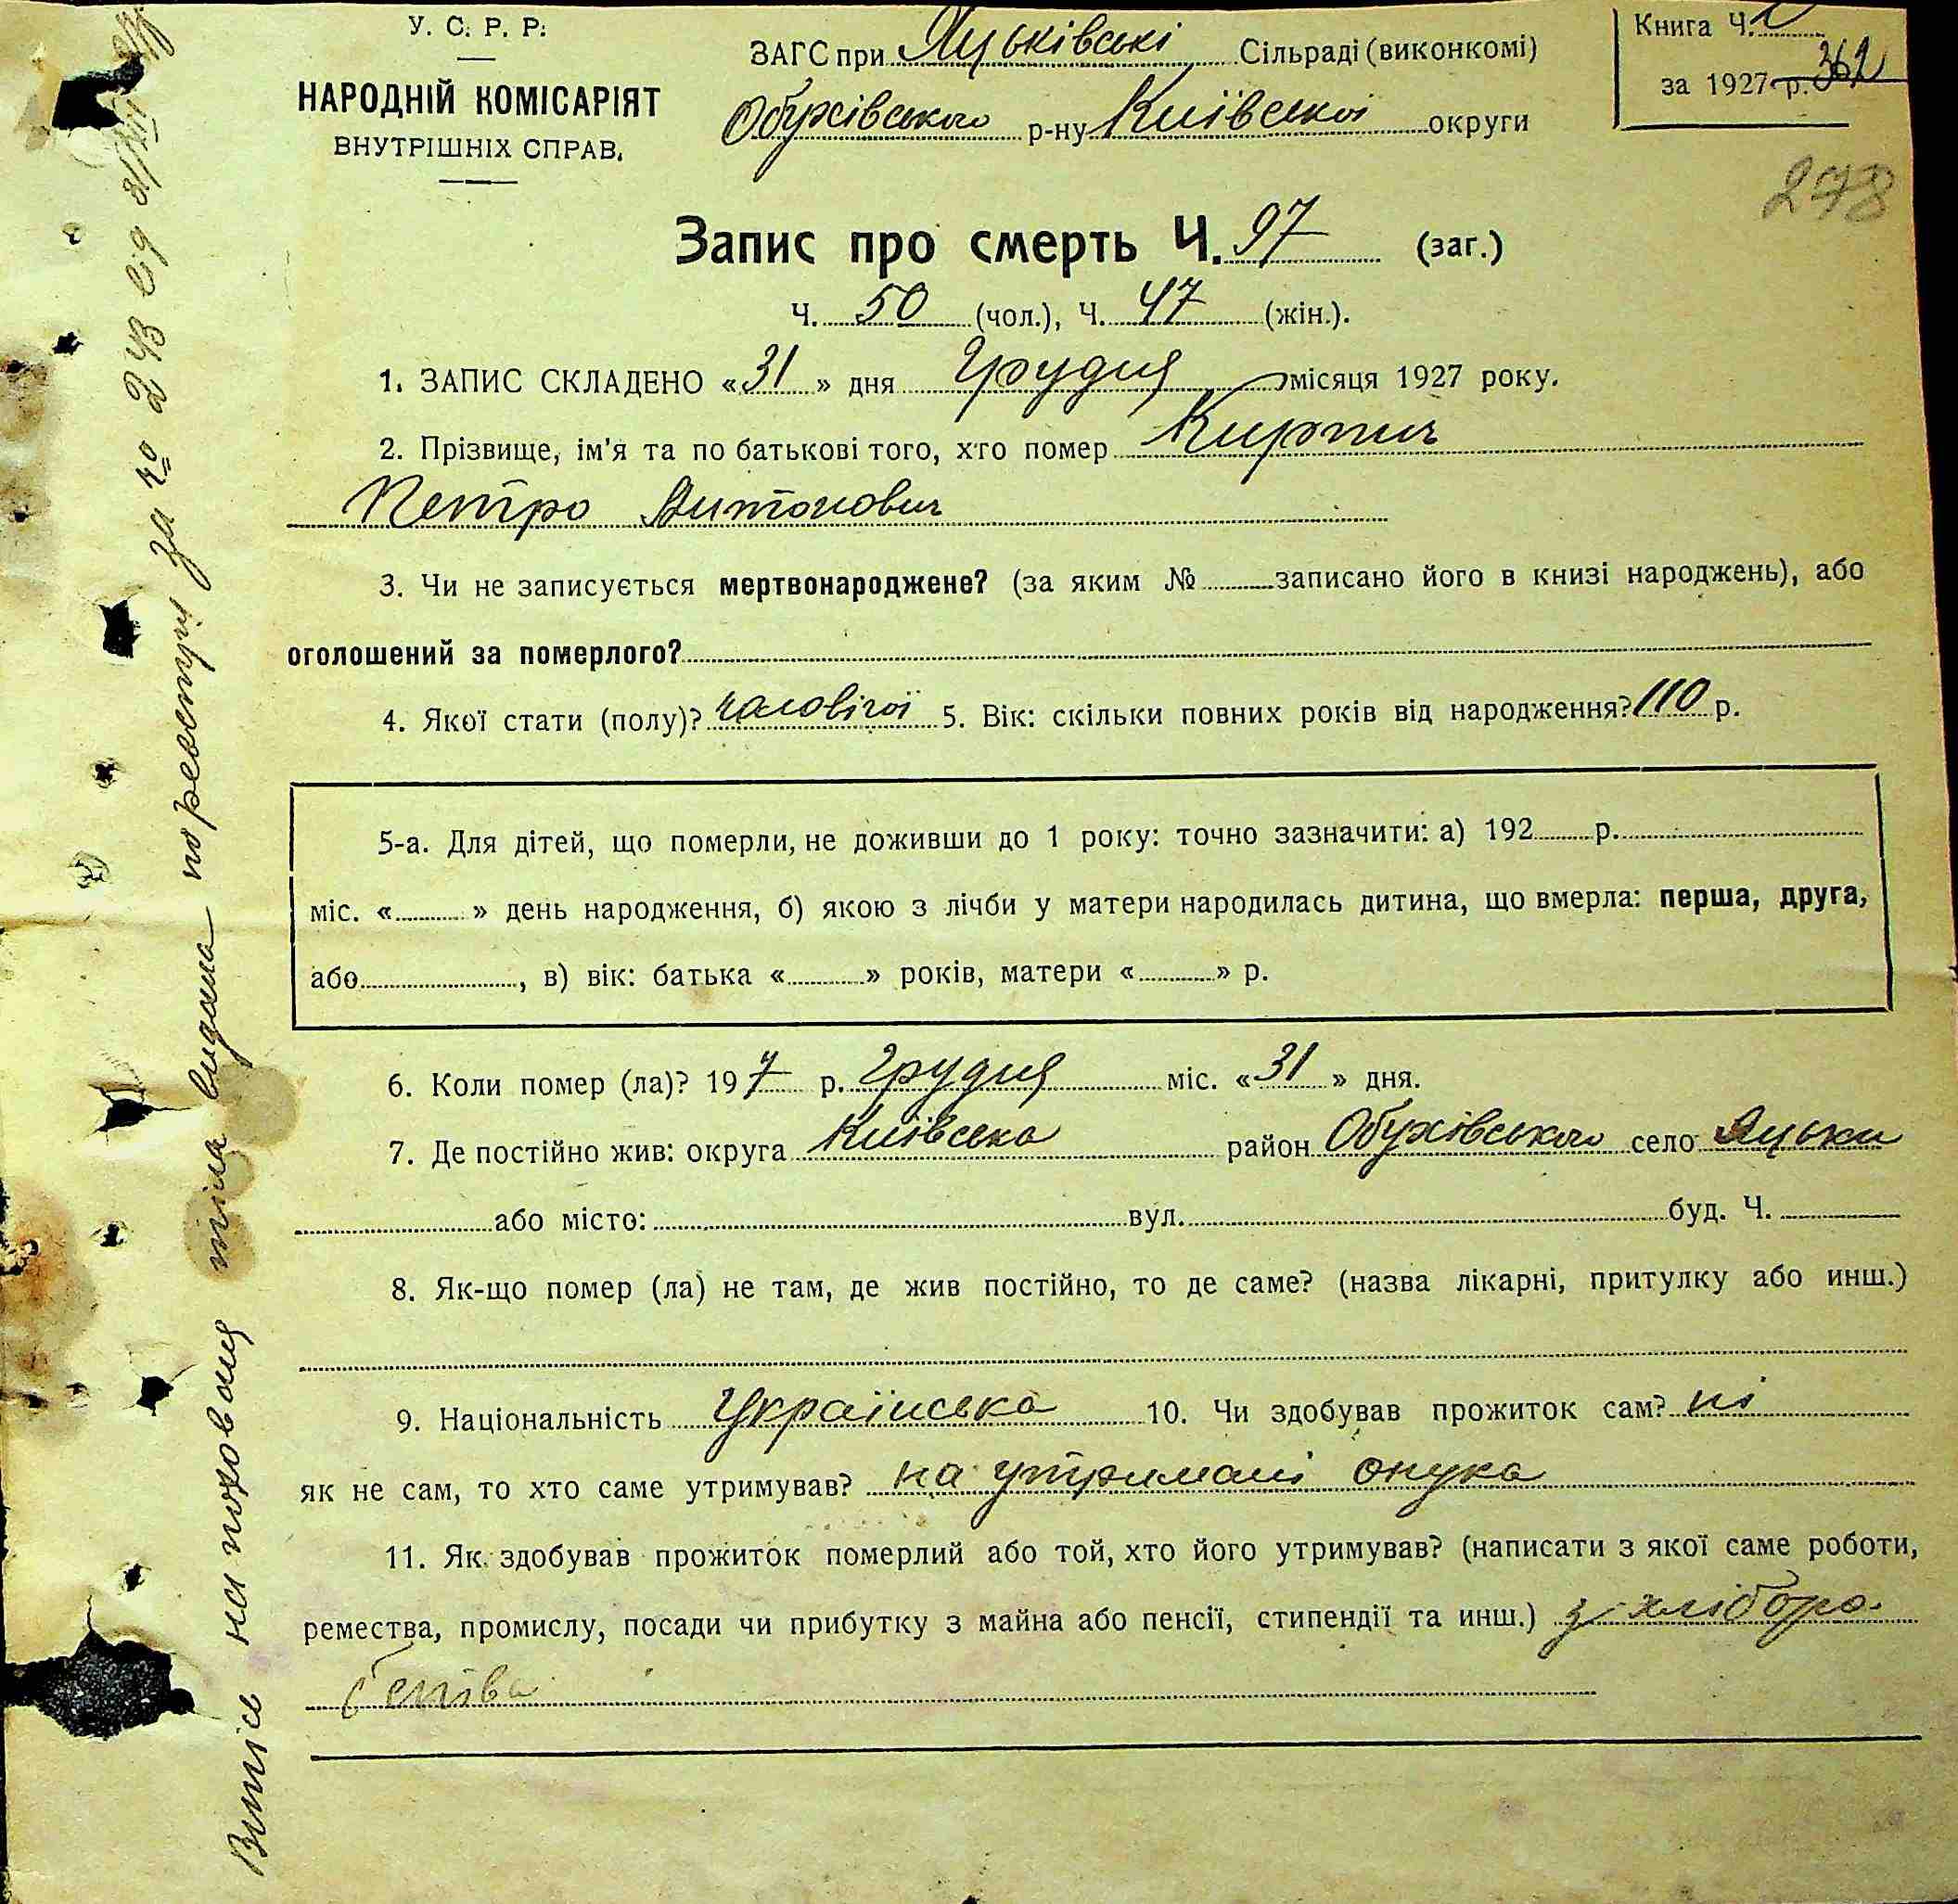 У. С. Р. Р.
НАРОДНІЙ КОМІСАРІЯТ
ВНУТРІШНІХ СПРАВ.
ЗАГС при Яцьківські Сільраді (виконкомі)
Обухівського р-ну Київської округи
Книга Ч.
за 1927 р. 362
278
Запис про смерть Ч. 97 (заг.)
Ч. 50 (чол.), Ч. 47 (жін.).
1. ЗАПИС СКЛАДЕНО «31» дня Грудня місяця 1927 року.
2. Прізвище, ім'я та по батькові того, хто помер Кирпич
Петро Антонович
3. Чи не записується мертвонароджене? (за яким № записано його в книзі народжень), або
оголошений за померлого?
4. Якої стати (полу)? чоловічої 5. Вік: скільки повних років від народження? 110 р.
5-а. Для дітей, що померли, не доживши до 1 року: точно зазначити: а) 192 р.
міс. « » день народження, б) якою з лічби у матери народилась дитина, що вмерла: перша, друга,
або , в) вік: батька « » років, матери « » р.
6. Коли помер (ла)? 19 7 р. Грудня міс. «31» дня.
7. Де постійно жив: округа Київська район Обухівського село Яцьки
або місто: вул. буд. Ч.
8. Як-що помер (ла) не там, де жив постійно, то де саме? (назва лікарні, притулку або инш.)
9. Національність Українська 10. Чи здобував прожиток сам? ні
як не сам, то хто саме утримував? на утримані онука
11. Як здобував прожиток померлий або той, хто його утримував? (написати з якої саме роботи,
ремества, промислу, посади чи прибутку з майна або пенсії, стипендії та инш.) з хліборо-
бства
Витіс на поховання тіла видана по реєстру за № 243 від 31/XII